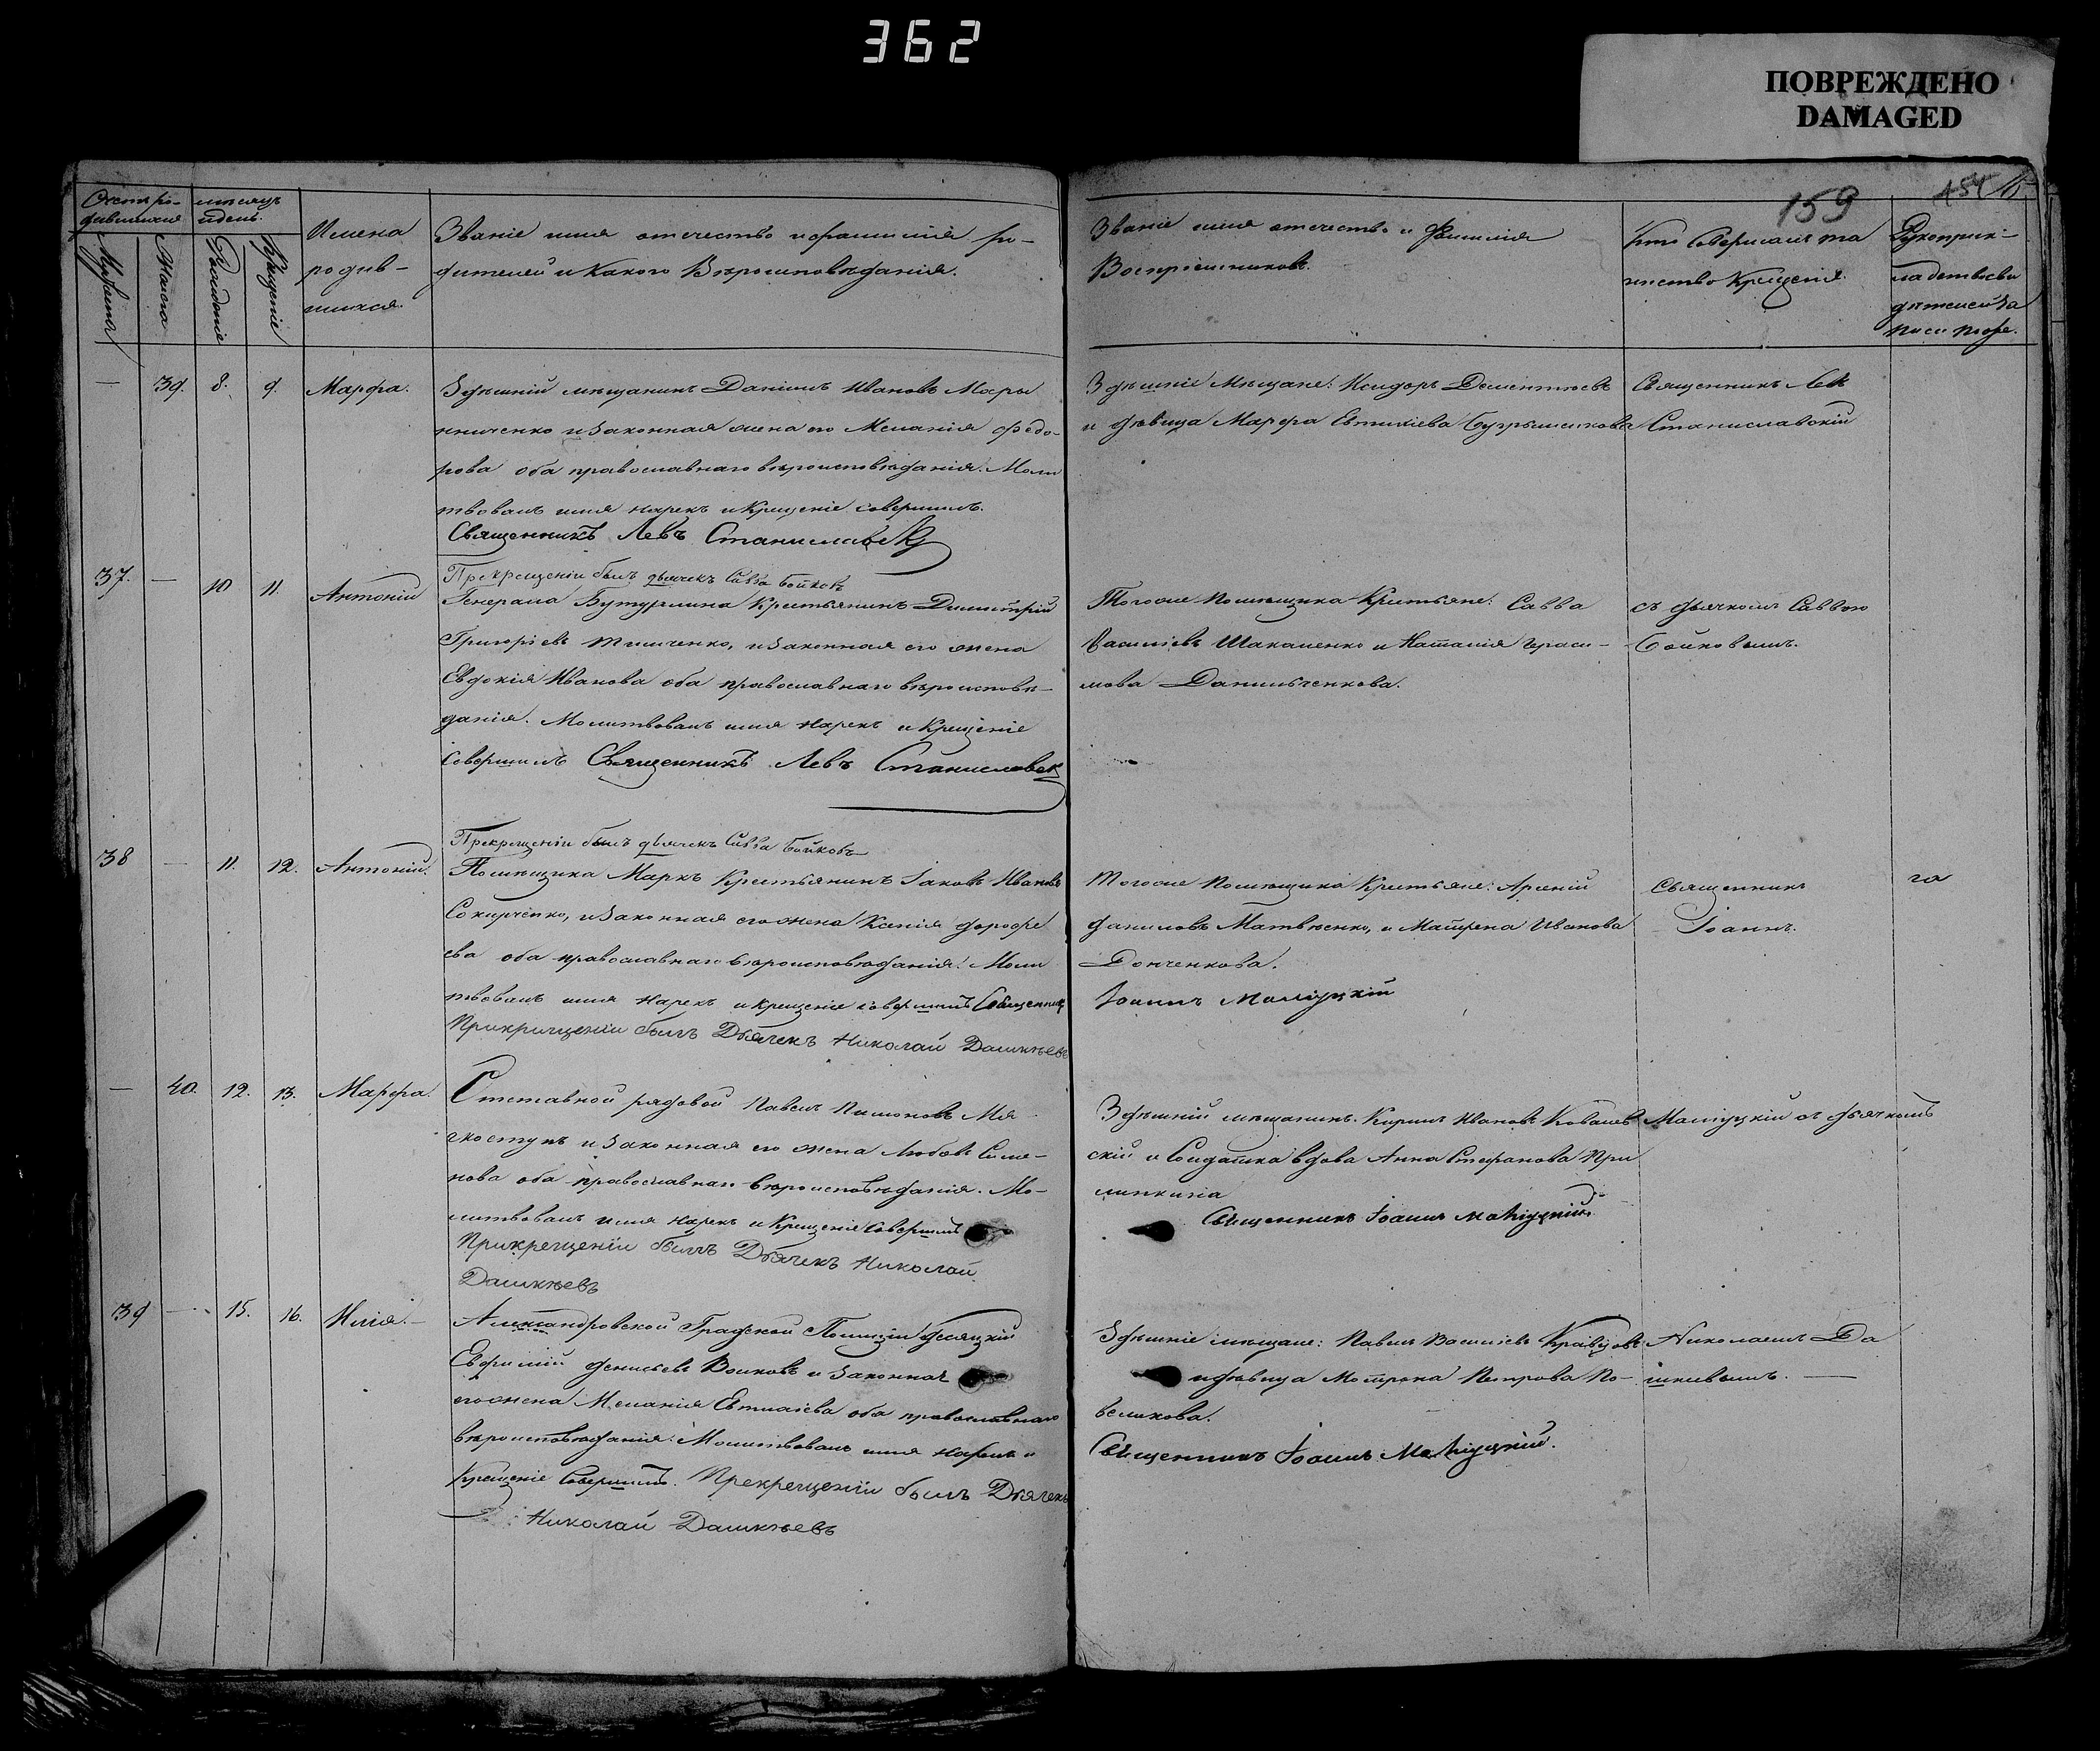 362
ПОВРЕЖДЕНО
DAMAGED
159
Счетъ ро-
дившихся
мѣсяцъ
и день.
Мужеска
Женска
Рожденіе
Крещеніе
Имена
родив-
шихся.
Званіе имя отечество и фамилія ро-
дителей и какого Вѣроисповѣданія.
Званіе имя отечество и Фамилія
Воспріемниковъ.
Кто совершалъ та
инство крещенія.
Рукоприк-
ладство сви
дѣтелей за
писи
— 39. 8. 9. Марфа.
Здѣшній мѣщанинъ Даніилъ Ивановъ
и законная жена его Меланія Федо-
рова оба православнаго вѣроисповѣданія. Моли
твовалъ имя нарекъ и крещеніе совершилъ.
Священникъ Левъ Станиславск
Здѣшніе мѣщане: Исидоръ Дементьевъ
и дѣвица Марфа Евтихіева
Священникъ Лев
Станиславскій
Прекрещеніи былъ дьячекъ Савва Бойковъ
37. — 10 11. Антоній
Генерала Бутурлина Крестьянинъ Димитрій
Григорьевъ Тимченко, и законная его жена
Евдокія Иванова оба православнаго вѣроисповѣ-
данія. Молитвовалъ имя нарекъ и крещеніе
совершилъ Священникъ Левъ Станиславск
Тогоже помѣщика Крестьяне: Савва
Василіевъ Шакаленко и Наталія Гераси-
мова Данильченкова.
съ дьячкомъ Саввою
Бойковымъ.
Прекрещеніи былъ дьячекъ Савва Бойковъ
38 — 11. 12. Антоній.
Помѣщика Маркъ Крестьянинъ Іаковъ Ивановъ
и законная его жена Ксенія Дорофе
ева оба православнаго вѣроисповѣданія. Моли
твовалъ имя нарекъ и крещеніе совершилъ Священник
Прикрищеніи былъ Дьячекъ Николай Дашкѣевъ
Тогоже помѣщика Крестьяне: Арсеній
Даниловъ Матвѣенко, и Матрена Иванова
Донченкова.
Іоаннъ
Священникъ
Іоаннъ.
га
— 40. 12. 13. Марфа.
Отставной рядовой Павелъ Пимоновъ Мя
и законная его жена Любовь Симе-
нова оба православнаго вѣроисповѣданія. Мо-
литвовалъ имя нарекъ и крещеніе совершилъ
Прикрещеніи былъ Дьячекъ Николай
Дашкѣевъ
Здѣшній мѣщанинъ Кирилъ Ивановъ Ковалев
скій и Солдатка вдова Анна Стефанова При
Священникъ Іоаннъ
съ дьячкомъ
39 — 15. 16. Илія.—
Александровской Градской Полиціи десяцкій
Евфимій Денисьевъ Волковъ и законная
его жена Меланія Евтихіева оба православнаго
вѣроисповѣданія. Молитвовалъ имя нарекъ и
крещеніе совершилъ. Прекрещеніи былъ Дьячекъ
Николай Дашкѣевъ
Здѣшніе мѣщане: Павелъ Василіевъ Кравцовъ
и дѣвица Матрона Петрова По-
Священникъ Іоаннъ
Николаемъ Да
шкевымъ. —